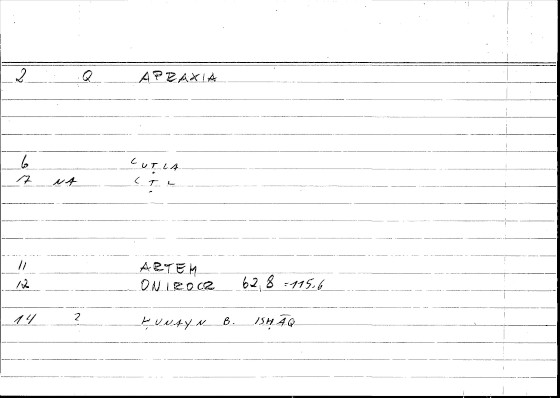 2 Q APRAXIA
6 ʿUṬLA
7 NA ʿṬL
11 ARTEM
12 ONIROCR 62,8 = 115.6
14 ? ḤUNAYN B. ISḤĀQ